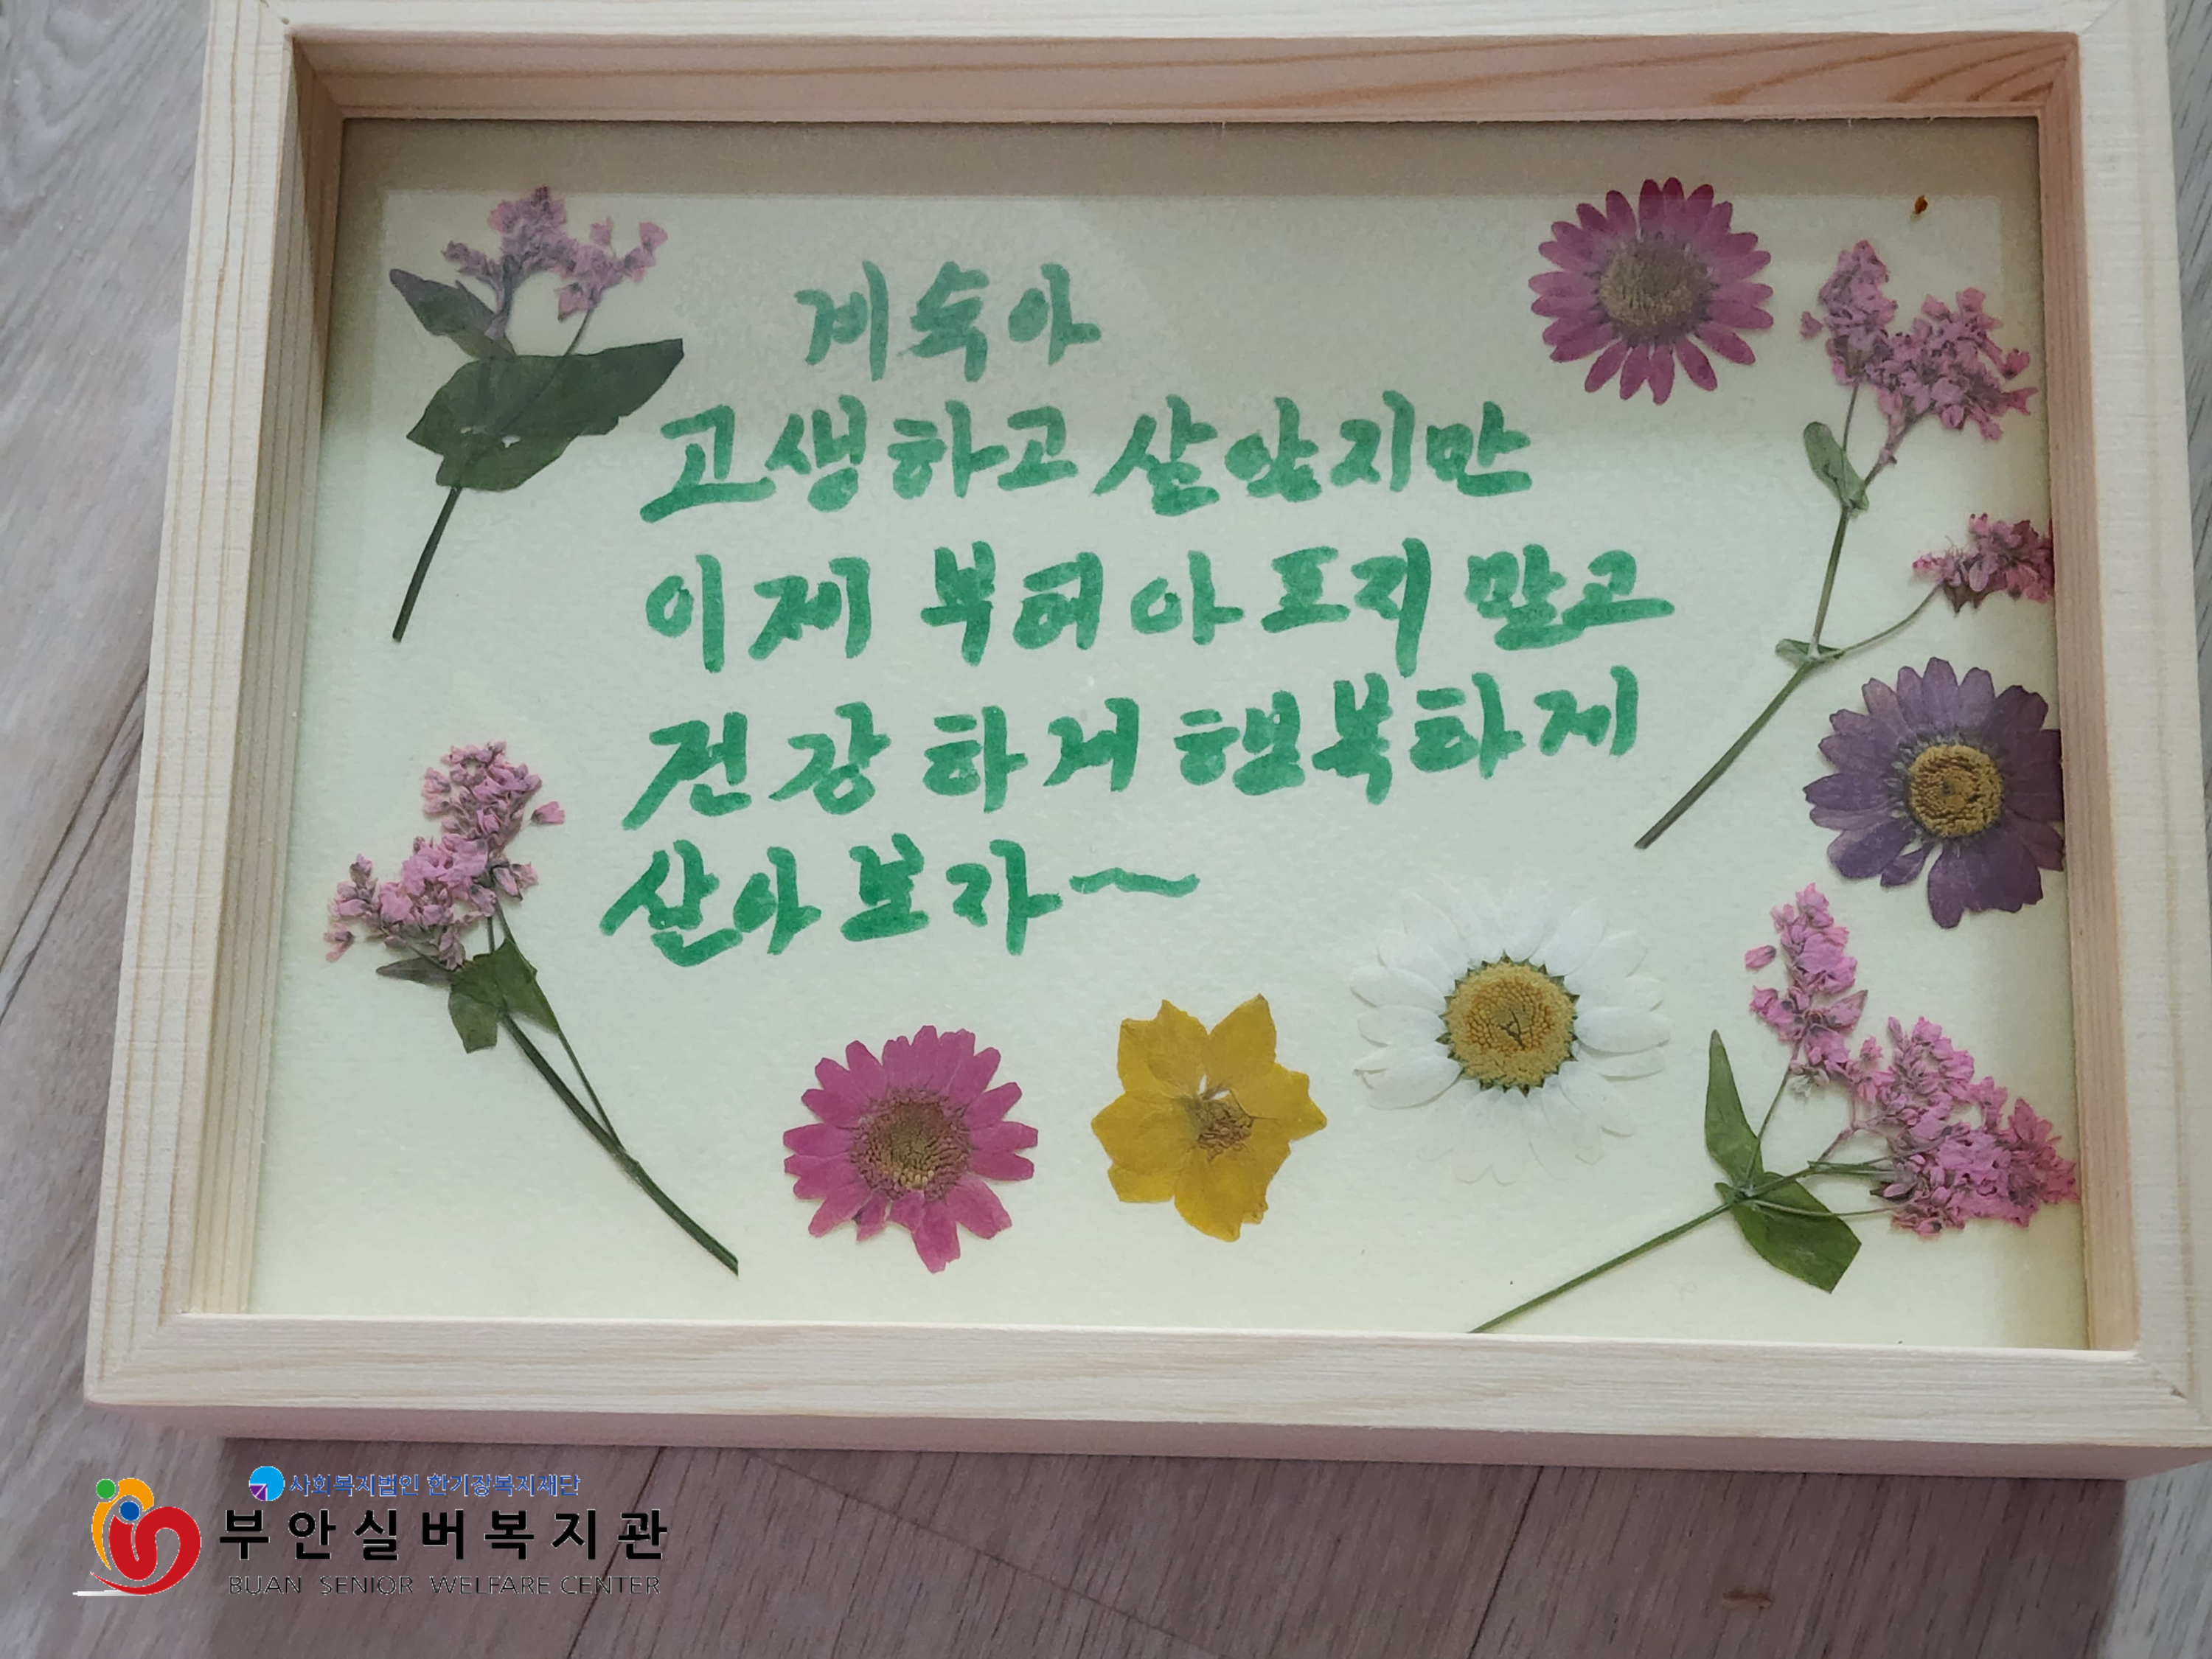 계숙아
고생하고 살았지만
이제 부터 아프지 말고
건강하게 행복하게
살아보자~
사회복지법인 한기장복지재단
부안실버복지관
BUAN SENIOR WELFARE CENTER